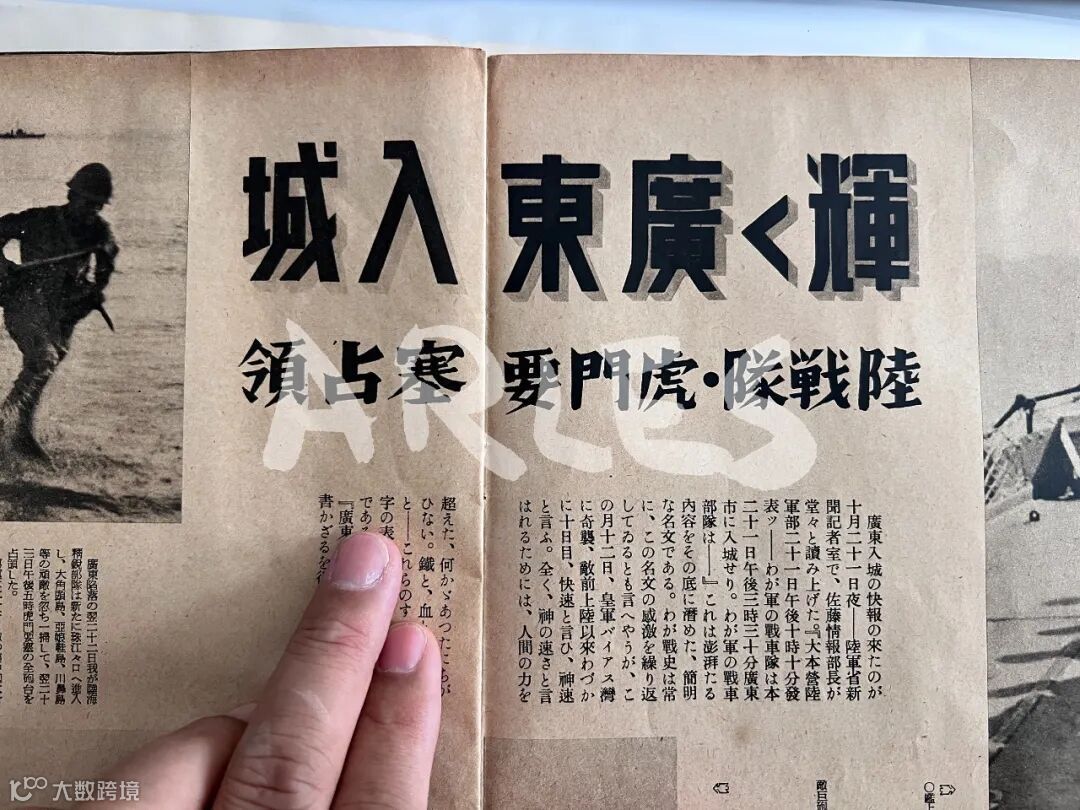 輝く廣東入城
陸戰隊・虎門要塞占領
廣東入城の快報の來たのが
十月二十一日夜――陸軍省新
聞記者室で、佐藤情報部長が
堂々と讀み上げた。『大本營陸
軍部二十一日午後十時十分發
表ッ――わが軍の戰車隊は本
二十一日午後三時三十分廣東
市に入城せり。わが軍の戰車
部隊は――』これは澎湃たる
內容をその底に潛めた、簡明
な名文である。わが戰史は常
に、この名文の感激を繰り返
してゐるとも言へやうが、こ
の月十二日、皇軍バイアス灣
に奇襲、敵前上陸以來わづか
に十日目、快速と言ひ、神速
と言ふ。全く、神の速さと言
はれるためには、人間の力を
超えた、何かゞあつたにちが
ひない。鐵と、血
と――これらのす
字の表
である
『廣東
書かざるを得
廣東陷落の翌二十二日我が陸海
精銳部隊は新たに珠江々口へ進入
し、大角頭島、亞娘鞋島、川鼻島
等の頑敵を忽ち一掃して、翌二十
三日午後五時虎門要塞の全砲台を
占領した。
敵巨砲
〇艦上
ARLES
大数跨境